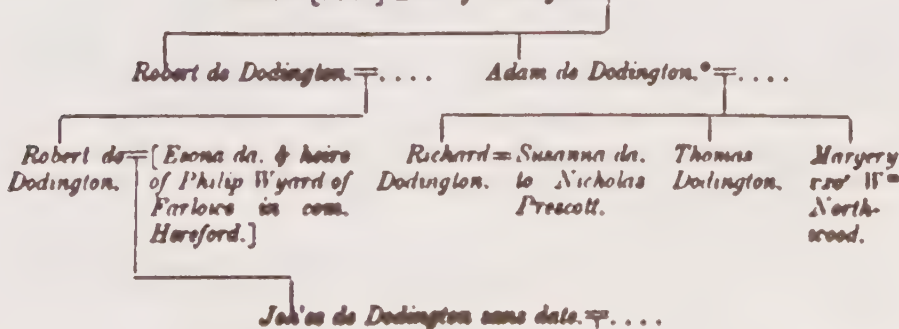 Robert de Dodington. = ....
Adam de Dodington.* = ....
Robert de = [Esona da. & heire
Dodington. of Philip Wyard of
Farlowe in com.
Hereford.]
Richard = Susanna da.
Dodington. to Nicholas
Prescott.
Thomas
Dodington.
Margery
uxor Wm
North-
wood.
Joh'es de Dodington sans date. = ....